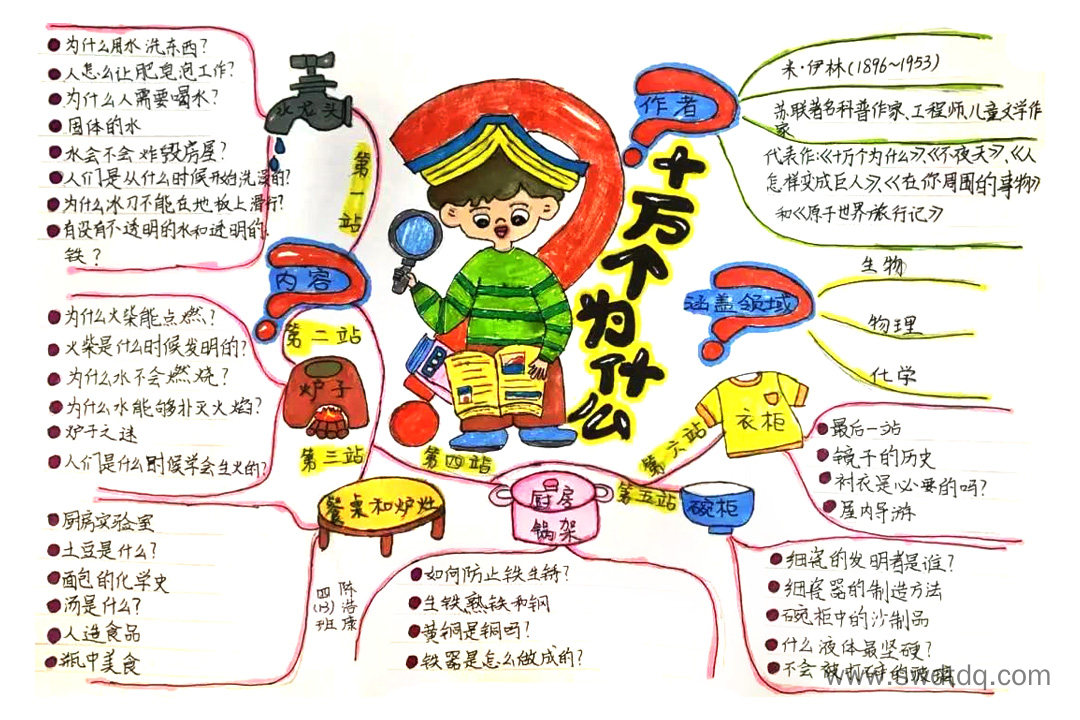 十万个为什么
作者
米·伊林(1896~1953)
苏联著名科普作家、工程师、儿童文学作
家
代表作:《十万个为什么》、《不夜天》、《人
怎样变成巨人》、《在你周围的事物》
和《原子世界旅行记》
涵盖领域
生物
物理
化学
内容
第一站
水龙头
为什么用水洗东西?
人怎么让肥皂泡工作?
为什么人需要喝水?
固体的水
水会不会炸毁房屋?
人们是从什么时候开始洗澡的?
为什么冰刀不能在地板上滑行?
有没有不透明的水和透明的
铁?
第二站
炉子
为什么火柴能点燃?
火柴是什么时候发明的?
为什么水不会燃烧?
为什么水能够扑灭火焰?
炉子之迷
人们是什么时候学会生火的?
第三站
餐桌和炉灶
厨房实验室
土豆是什么?
面包的化学史
汤是什么?
人造食品
瓶中美食
第四站
厨房
锅架
如何防止铁生锈?
生铁熟铁和钢
黄铜是铜吗?
铁器是怎么做成的?
第五站
碗柜
细瓷的发明者是谁?
细瓷器的制造方法
碗柜中的沙制品
什么液体最坚硬?
不会被打碎的玻璃
第六站
衣柜
最后一站
镜子的历史
衬衣是必要的吗?
屋内导游
四(13)班
陈浩康